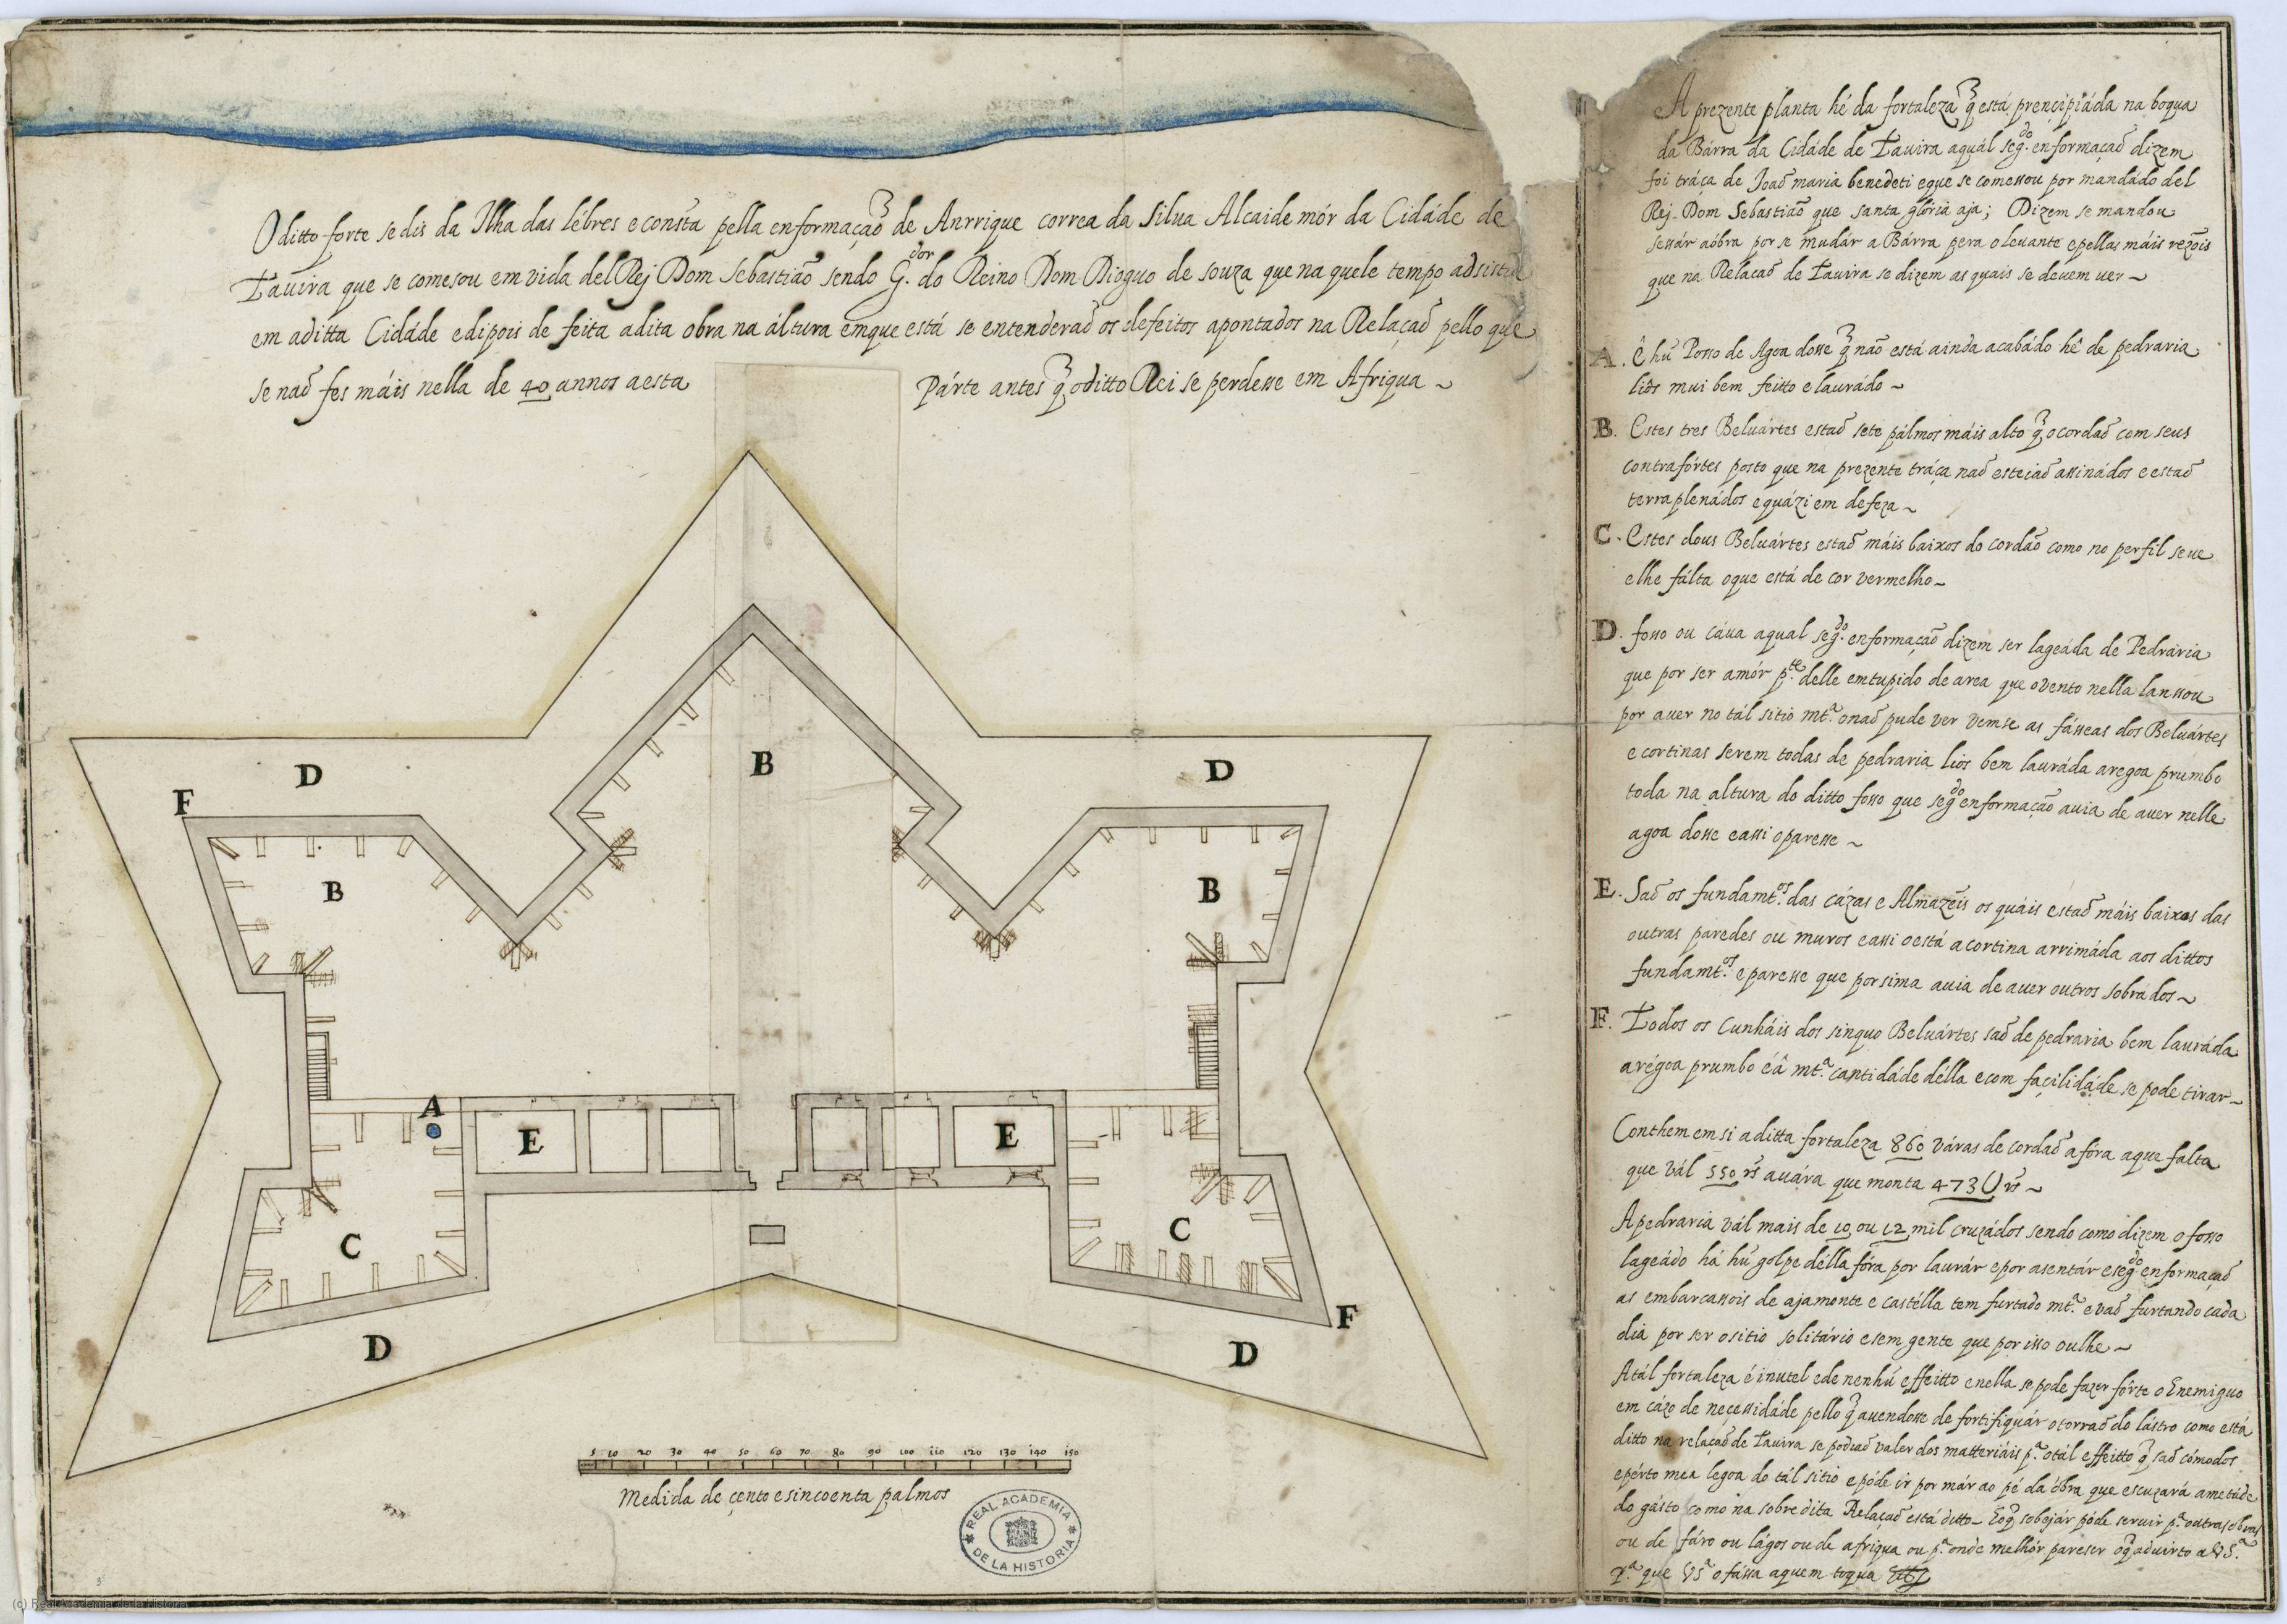 O ditto forte se dis da Ilha das lébres e consta pella enformaçaõ de Anrrique correa da Silua Alcaide mór da Cidáde de
Tauira que se comesou em vida del Rej Dom Sebastiaõ sendo G.dor do Reino Dom Dioguo de souza que na quele tempo adsistia
em aditta Cidáde e dipois de feita adita obra na áltura em que está se entenderaõ os defeitos apontados na Relaçaõ pello que
se naõ fes máis nella de 40 annos aesta Párte antes q̃ o ditto Rei se perdesse em Afriqua ~
D
D
B
F
B
B
A
E
E
C
C
F
D
D
5 10 20 30 40 50 60 70 80 90 100 110 120 130 140 150
Medida de çento e sincoenta palmos
REAL ACADEMIA
DE LA HISTORIA
A prezente planta hé da fortaleza q̃ está prençipiáda na boqua
da Bárra da Cidáde de Tauira aquál seg.do enformaçaõ dizem
foi tráça de Joaõ maria benedeti e que se comessou por mandádo del
Rej Dom Sebastiaõ que santa glória aja; Dizem se mandou
sessár aóbra por se mudár a Bárra pera o leuante e pellas máis rezõis
que na Relacaõ de Tauira se dizem as quais se deuem uer ~
A. ê hũ Posso de Agoa dosse q̃ não está ainda acabádo hê de pedraria
liõs mui bem feitto e laurádo ~
B. Estes tres Beluártes estaõ sete pálmos máis alto q̃ o cordaõ com seus
contrafórtes posto que na prezente tráça naõ estejaõ assinádos e estaõ
terraplenádos e quázi em defeza ~
C. Estes dous Beluártes estaõ máis baixos do cordaõ como no perfil se ue
e lhe fálta o que está de cor vermelho ~
D. fosso ou cáua a qual seg.do enformaçaõ dizem ser lageáda de Pedraria
que por ser amór p.te delle emtupido de area que o vento nella lanssou
por auer no tál sitio mt.a o naõ pude ver vemse as fásseas dos Beluártes
e cortinas serem todas de pedraria lios bem lauráda aregoa prumbo
toda na altura do ditto fosso que seg.do enformação auia de auer nelle
agoa dosse e assi o paresse ~
E. Saõ os fundamt.os das cázas e Almazẽis os quáis estaõ máis baixos das
outras paredes ou muros e assi o está a cortina arrimáda aos dittos
fundamt.os e paresse que por sima auia de auer outros sobrádos ~
F. Todos os Cunháis dos sinquo Beluártes saõ de pedraria bem lauráda
arégoa prumbo é á mt.a cantidáde délla e com façilidáde se pode tirar ~
Conthem em si a ditta fortaleza 860 váras de cordaõ a fóra a que falta
que vál 550 rs̃ a uára que monta 473U rs̃ ~
A pedraria vál mais de 10 ou 12 mil cruzádos sendo como dizem o fosso
lageádo há hũ golpe délla fóra por laurár e por asentár e seg.do enformaçaõ
as embarcassois de ajamonte e castélla tem furtado mt.a e vaõ furtando cada
dia por ser o sitio solitário e sem gente que por isso oulhe ~
A tál fortaleza é inutel e de nenhũ effeitto e nella se pode fazer fórte o Enemiguo
em cázo de neçessidáde pello q̃ auendosse de fortifiquár o torraõ do lástro como está
ditto na relacaõ de Tauira se podiaõ valer dos matteriáis p.a o tál effeitto q̃ saõ cómodos
e pérto mea legoa do tál sitio e póde ir por már ao pé da óbra que escuzará ametáde
do gásto como na sobredita Relaçaõ está ditto ~ E o q̃ sobejár póde seruir p.a outras obras
ou de fáro ou lágos ou de afriqua ou p.a onde melhór pareser o q̃ aduirto a VS.a
p.a que VS.a o fássa a quem toqua
3
(c) Real Academia de la Historia